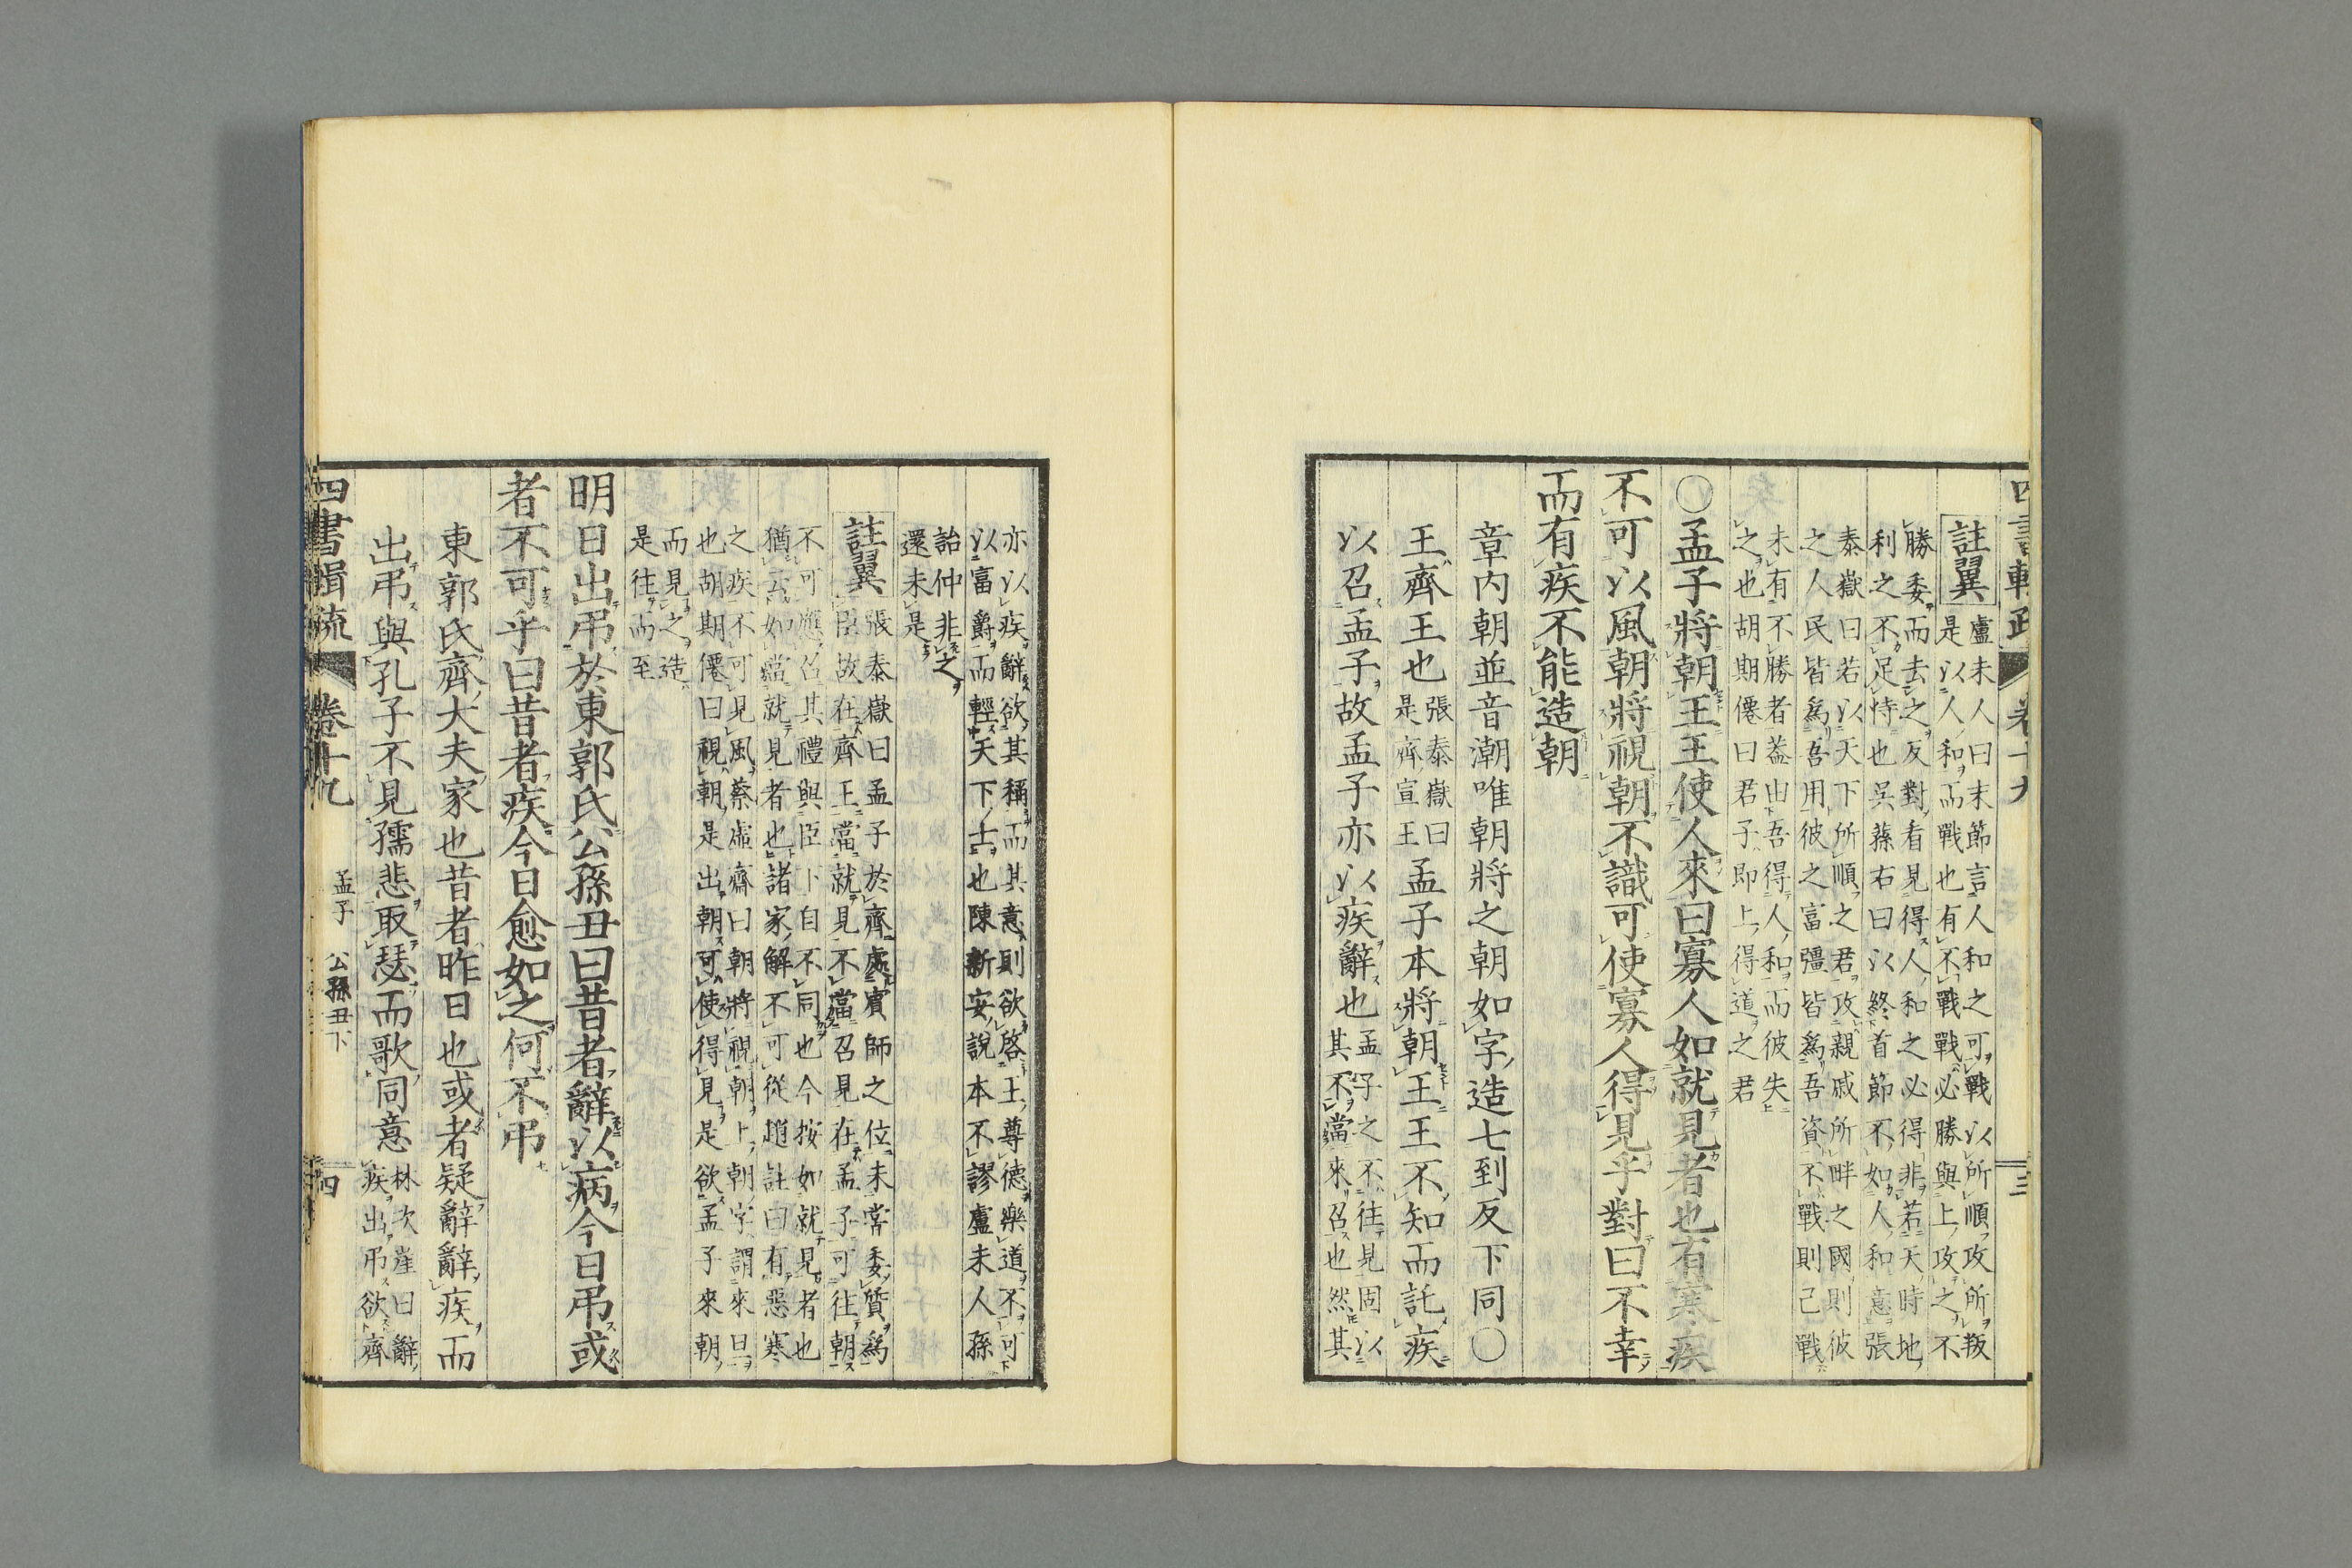 四書輯疏 卷十九 三
註翼 盧未人曰末節言人和之可戰以所順攻所叛
是以人和而戰也有不戰戰必勝與上攻之不
勝委而去之反對看見得人和之必得非若天時地
利之不足恃也吳蓀右曰以終首節不如人和意張
泰嶽曰若以天下所順之君攻親戚所畔之國則彼
之人民皆爲吾用彼之富彊皆爲吾資不戰則已戰
未有不勝者葢由吾得人和而彼失
之也胡期僊曰君子即上得道之君
○孟子將朝王王使人來曰寡人如就見者也有寒疾
不可以風朝將視朝不識可使寡人得見乎對曰不幸
而有疾不能造朝
章内朝並音潮唯朝將之朝如字造七到反下同○
王齊王也 張泰嶽曰
是齊宣王 孟子本將朝王王不知而託疾
以召孟子故孟子亦以疾辭也 孟子之不往見固以
其不當來召也然其
亦以疾辭欲其稱而其意則欲啓王尊德樂道不可
以富爵而輕天下士也陳新安說本不謬盧未人孫
詒仲非之
還未是
註翼 張泰嶽曰孟子於齊處賓師之位未常委質爲
臣故在齊王當就見不當召見在孟子可往朝
不可應召其禮與臣下自不同也今按如就見者也
猶云如當就見者也諸家解不可從趙註曰有惡寒
之疾不可見風蔡虛齋曰朝將視朝上朝字謂來旦
也胡期僊曰視朝是出朝可使得見是欲孟子來朝
而見之造
是往而至
明日出弔於東郭氏公孫丑曰昔者辭以病今日弔或
者不可乎曰昔者疾今日愈如之何不弔
東郭氏齊大夫家也昔者昨日也或者疑辭辭疾而
出弔與孔子不見孺悲取瑟而歌同意 林次崖曰辭
疾出弔欲齊
四書輯疏 卷十九 孟子 公孫丑下 四